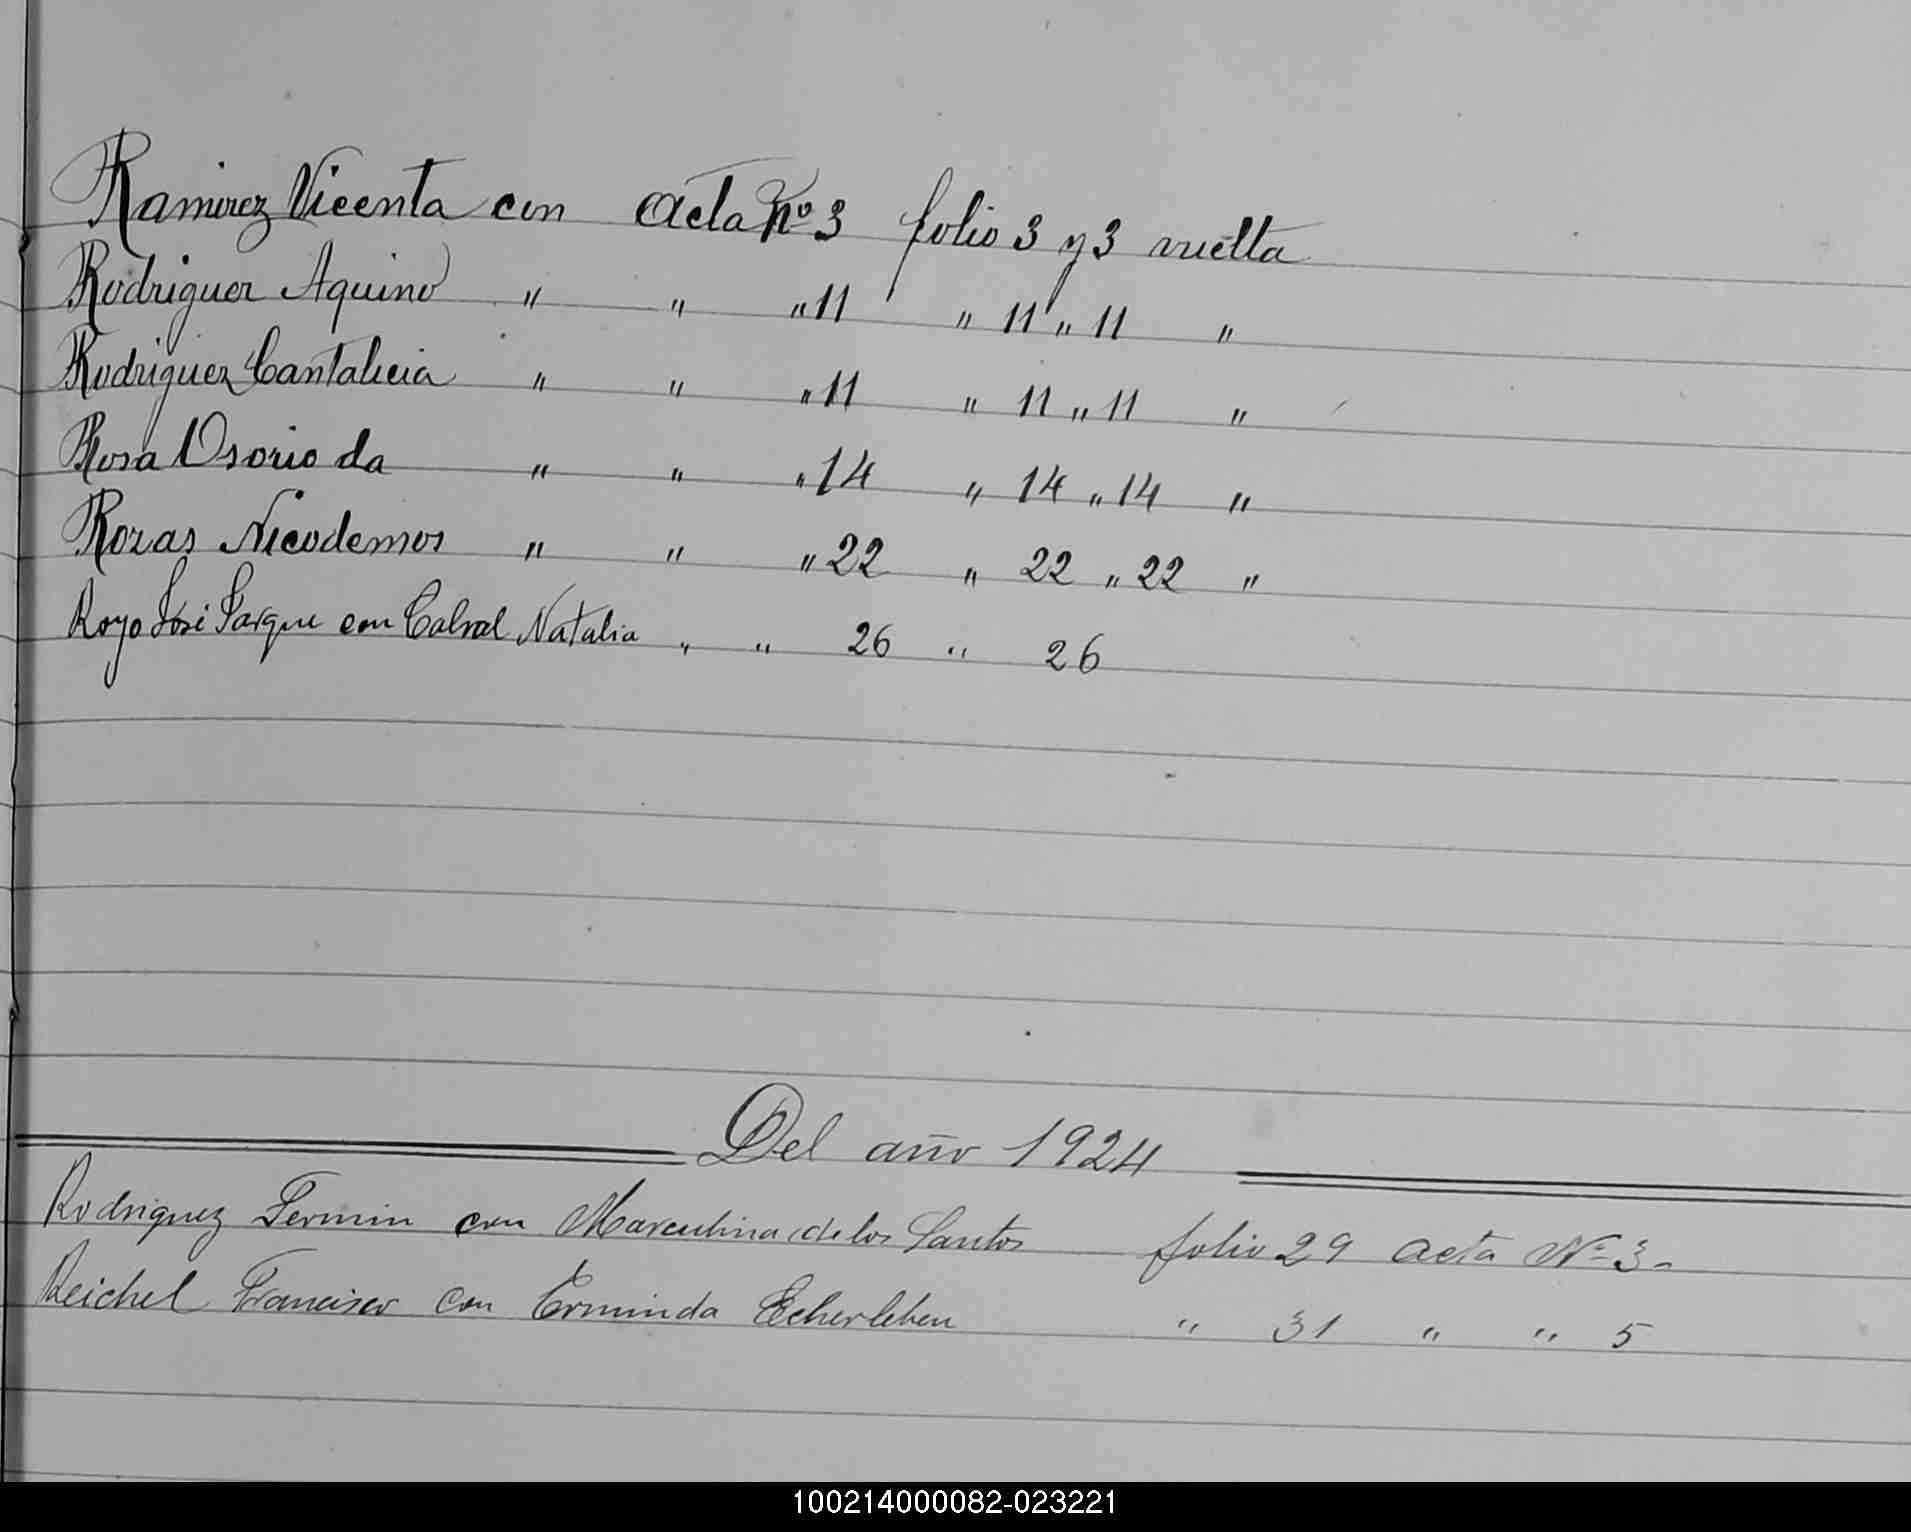 Ramirez Vicenta con Acta Nº 3 folio 3 y 3 vuelta
Rodriguez Aquino " " " 11 " 11 " 11 "
Rodriguez Cantalicia " " " 11 " 11 " 11 "
Rosa Osorio da " " " 14 " 14 " 14 "
Rozas Nicodemos " " " 22 " 22 " 22 "
Royo José con Cabral Natalia " " 26 " 26
Del año 1924
Rodriguez Fermin con Marculina de los Santos folio 29 acta Nº 3-
Reichel Francisco con Erminda " 31 " " 5
100214000082-023221